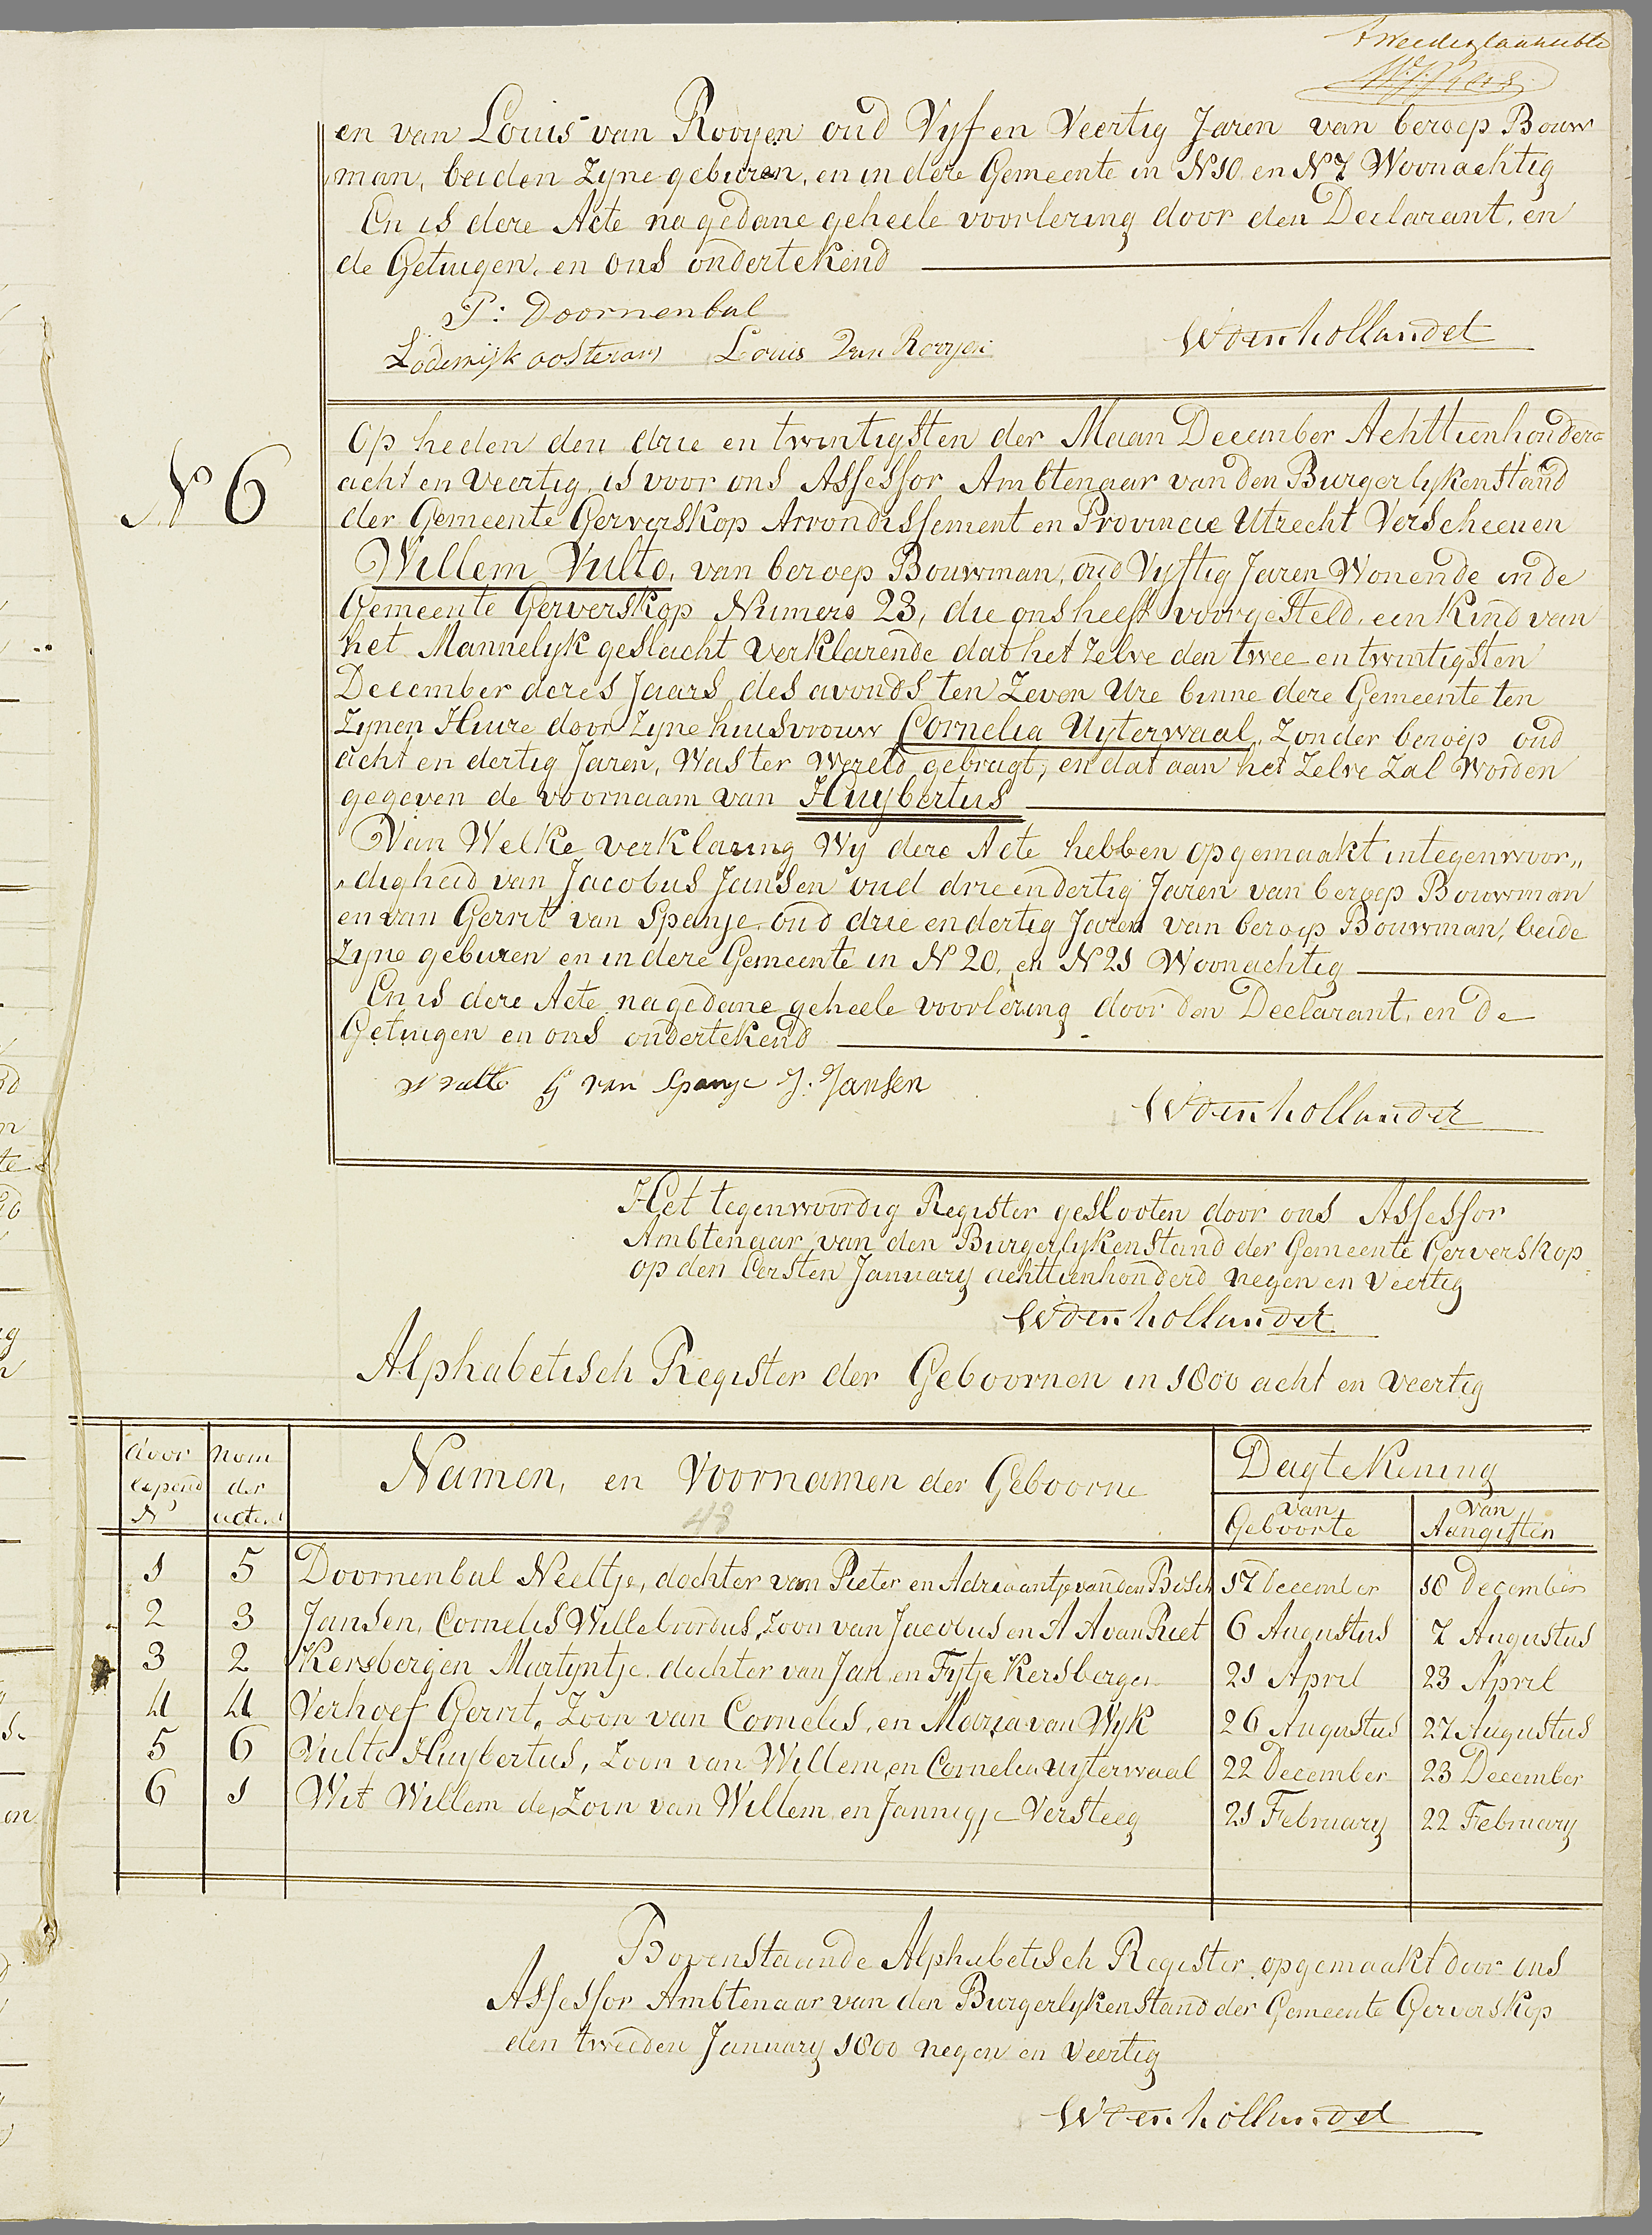 en van Louis van Rooyen oud Vyf en Veertig Jaren van beroep Bouw
man, beiden Zyne geburen, en in deze Gemeente in N 10 en N 7 Woonachtig
En is deze Acte na gedane geheele voorlezing door den Declarant, en
de Getuigen, en ons ondertekend
P: Doornenbal
Lodewijk oosterom Louis van Rooyen
W den hollander
N 6
Op heden den drie en twintigsten der Maan December Achttienhonderd
acht en Veertig, is voor ons Assessor Ambtenaar van den Burgerlyken Stand
der Gemeente Gerverskop Arrondissement en Provincie Utrecht Verscheenen
Willem Vulto, van beroep Bouwman, oud Vyftig Jaren Wonende in de
Gemeente Gerverskop Numero 23, die ons heeft voorgesteld, een Kind van
het Mannelyk geslacht verklarende dat het zelve den twee en twintigsten
December dezes Jaars des avonds ten Zeven Ure binne deze Gemeente ten
Zynen Huize door Zyne huisvrouw Cornelia Uyterwaal, Zonder beroep oud
acht en dertig Jaren, Was ter Wereld gebragt, en dat aan het Zelve Zal Worden
gegeven de voornaam van Huybertus
Van Welke verklaring Wy deze Acte hebben opgemaakt in tegenwoor„
„digheid van Jacobus Jansen oud drie en dertig Jaren van beroep Bouwman
en van Gerrit van Spanje oud drie en dertig Jaren van beroep Bouwman, beide
Zyne geburen en in deze Gemeente in N 20, en N 21 Woonachtig
En is deze Acte na gedane geheele voorlezing door den Declarant, en De
Getuigen en ons ondertekend
W Vulto G van Spanje J. Jansen
W den hollander
Het tegenwoordig Register geslooten door ons Assessor
Ambtenaar van den Burgerlyken Stand der Gemeente Gerverskop
op den Eersten January achttienhonderd negen en Veertig
W den hollander
Alphabetisch Register der Geboornen in 1800 acht en Veertig
door lopend N
nom der acten
Namen, en Voornamen der Geboorne
48
Dagtekening
van Geboorte
van Aangiften
1 5 Doornenbal Neeltje, dochter van Pieter en Adriaantje van den Bosch 17 December 18 December
2 3 Jansen, Cornelis Willebrordus, Zoon van Jacobus en A A van Riet 6 Augustus 7 Augustus
3 2 Kersbergen Martyntje dochter van Jan en Fytje Kersbergen 21 April 23 April
4 4 Verhoef Gerrit, Zoon van Cornelis, en Maria van Wyk 26 Augustus 27 Augustus
5 6 Vulto Huybertus, Zoon van Willem, en Cornelia Uyterwaal 22 December 23 December
6 1 Wit Willem de, Zoon van Willem en Jannigje Versteeg 21 February 22 February
Bovenstaande Alphabetisch Register opgemaakt door ons
Assessor Ambtenaar van den Burgerlyken Stand der Gemeente Gerverskop
den tweeden January 1800 negen en Veertig
W den hollander